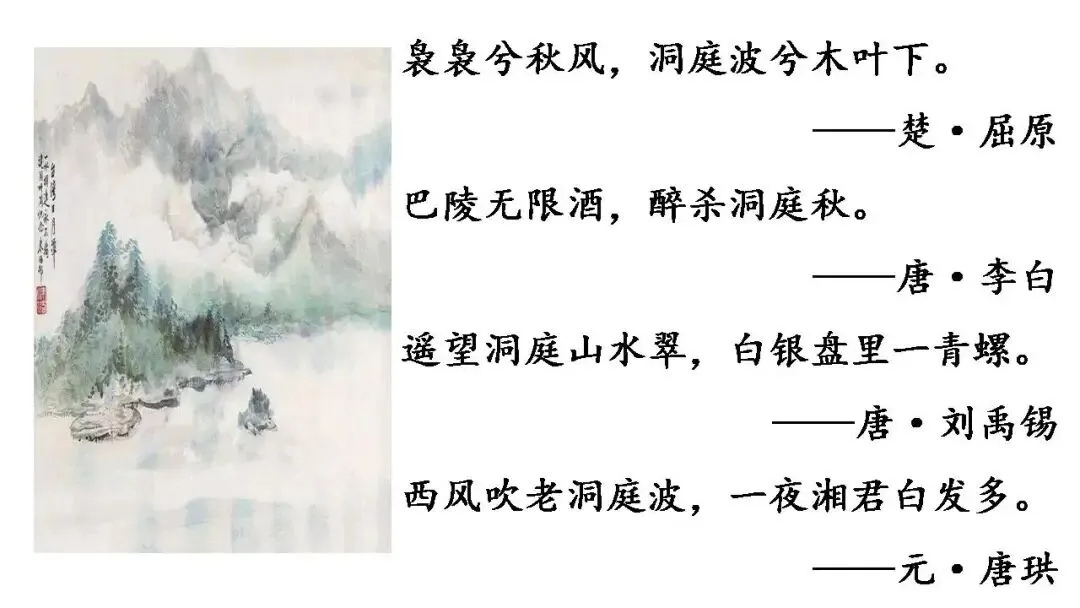 袅袅兮秋风，洞庭波兮木叶下。
——楚·屈原
巴陵无限酒，醉杀洞庭秋。
——唐·李白
遥望洞庭山水翠，白银盘里一青螺。
——唐·刘禹锡
西风吹老洞庭波，一夜湘君白发多。
——元·唐珙